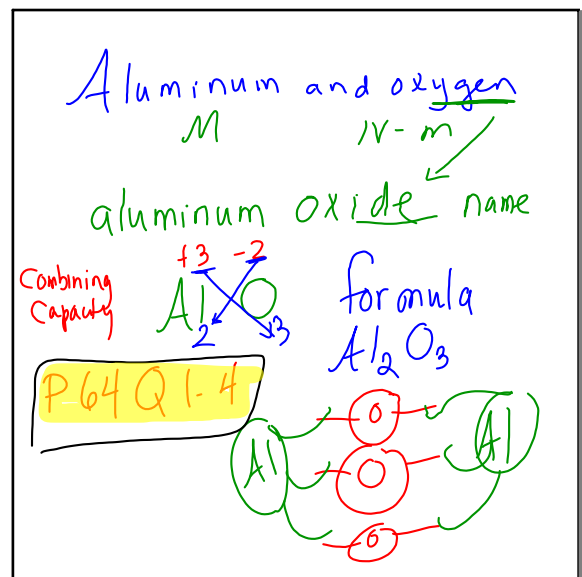 Aluminum and oxygen
M N-m
aluminum oxide name
+3 -2
Combining
Capacity
Al O
2 3
formula
Al2 O3
P-64 Q 1-4
O
Al Al
O
O